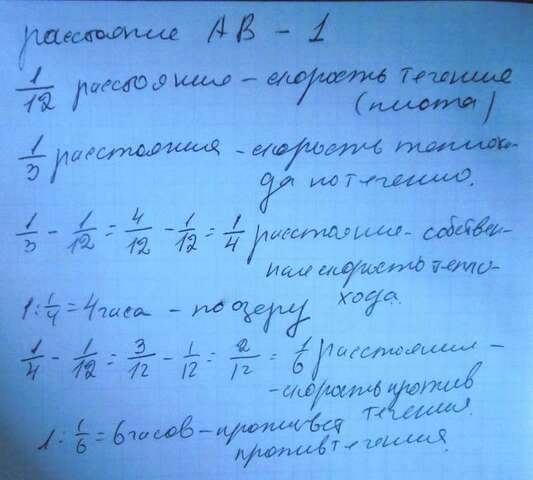 расстояние AB - 1
1/12 расстояния - скорость течения
(плота)
1/3 расстояния - скорость теплохо-
да по течению.
1/3 - 1/12 = 4/12 - 1/12 = 1/4 расстояния - собствен-
ная скорость тепло-
хода.
1 : 1/4 = 4 часа - по озеру
1/4 - 1/12 = 3/12 - 1/12 = 2/12 = 1/6 расстояния -
- скорость против
течения.
1 : 1/6 = 6 часов - против
против течения.